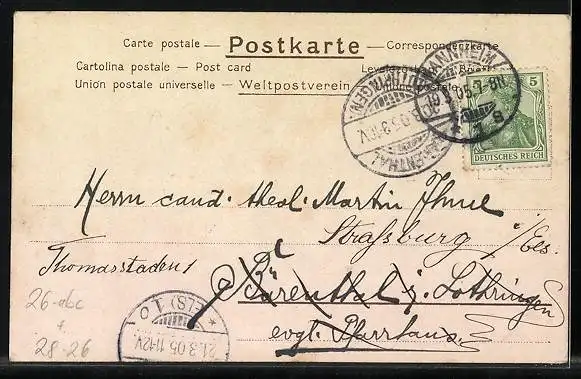 Carte postale — Postkarte — Correspondenzkarte
Cartolina postale — Post card
Union postale universelle — Weltpostverein
MANNHEIM
05.7-8N
5
DEUTSCHES REICH
Herrn cand. theol. Martin Ihme
Straßburg i/Els.
Thomasstaden 1
Bärenthal i. Lothringen
evgl. Pfarrhaus.
21.3.05.11-12V.
26-abc
+
28-26